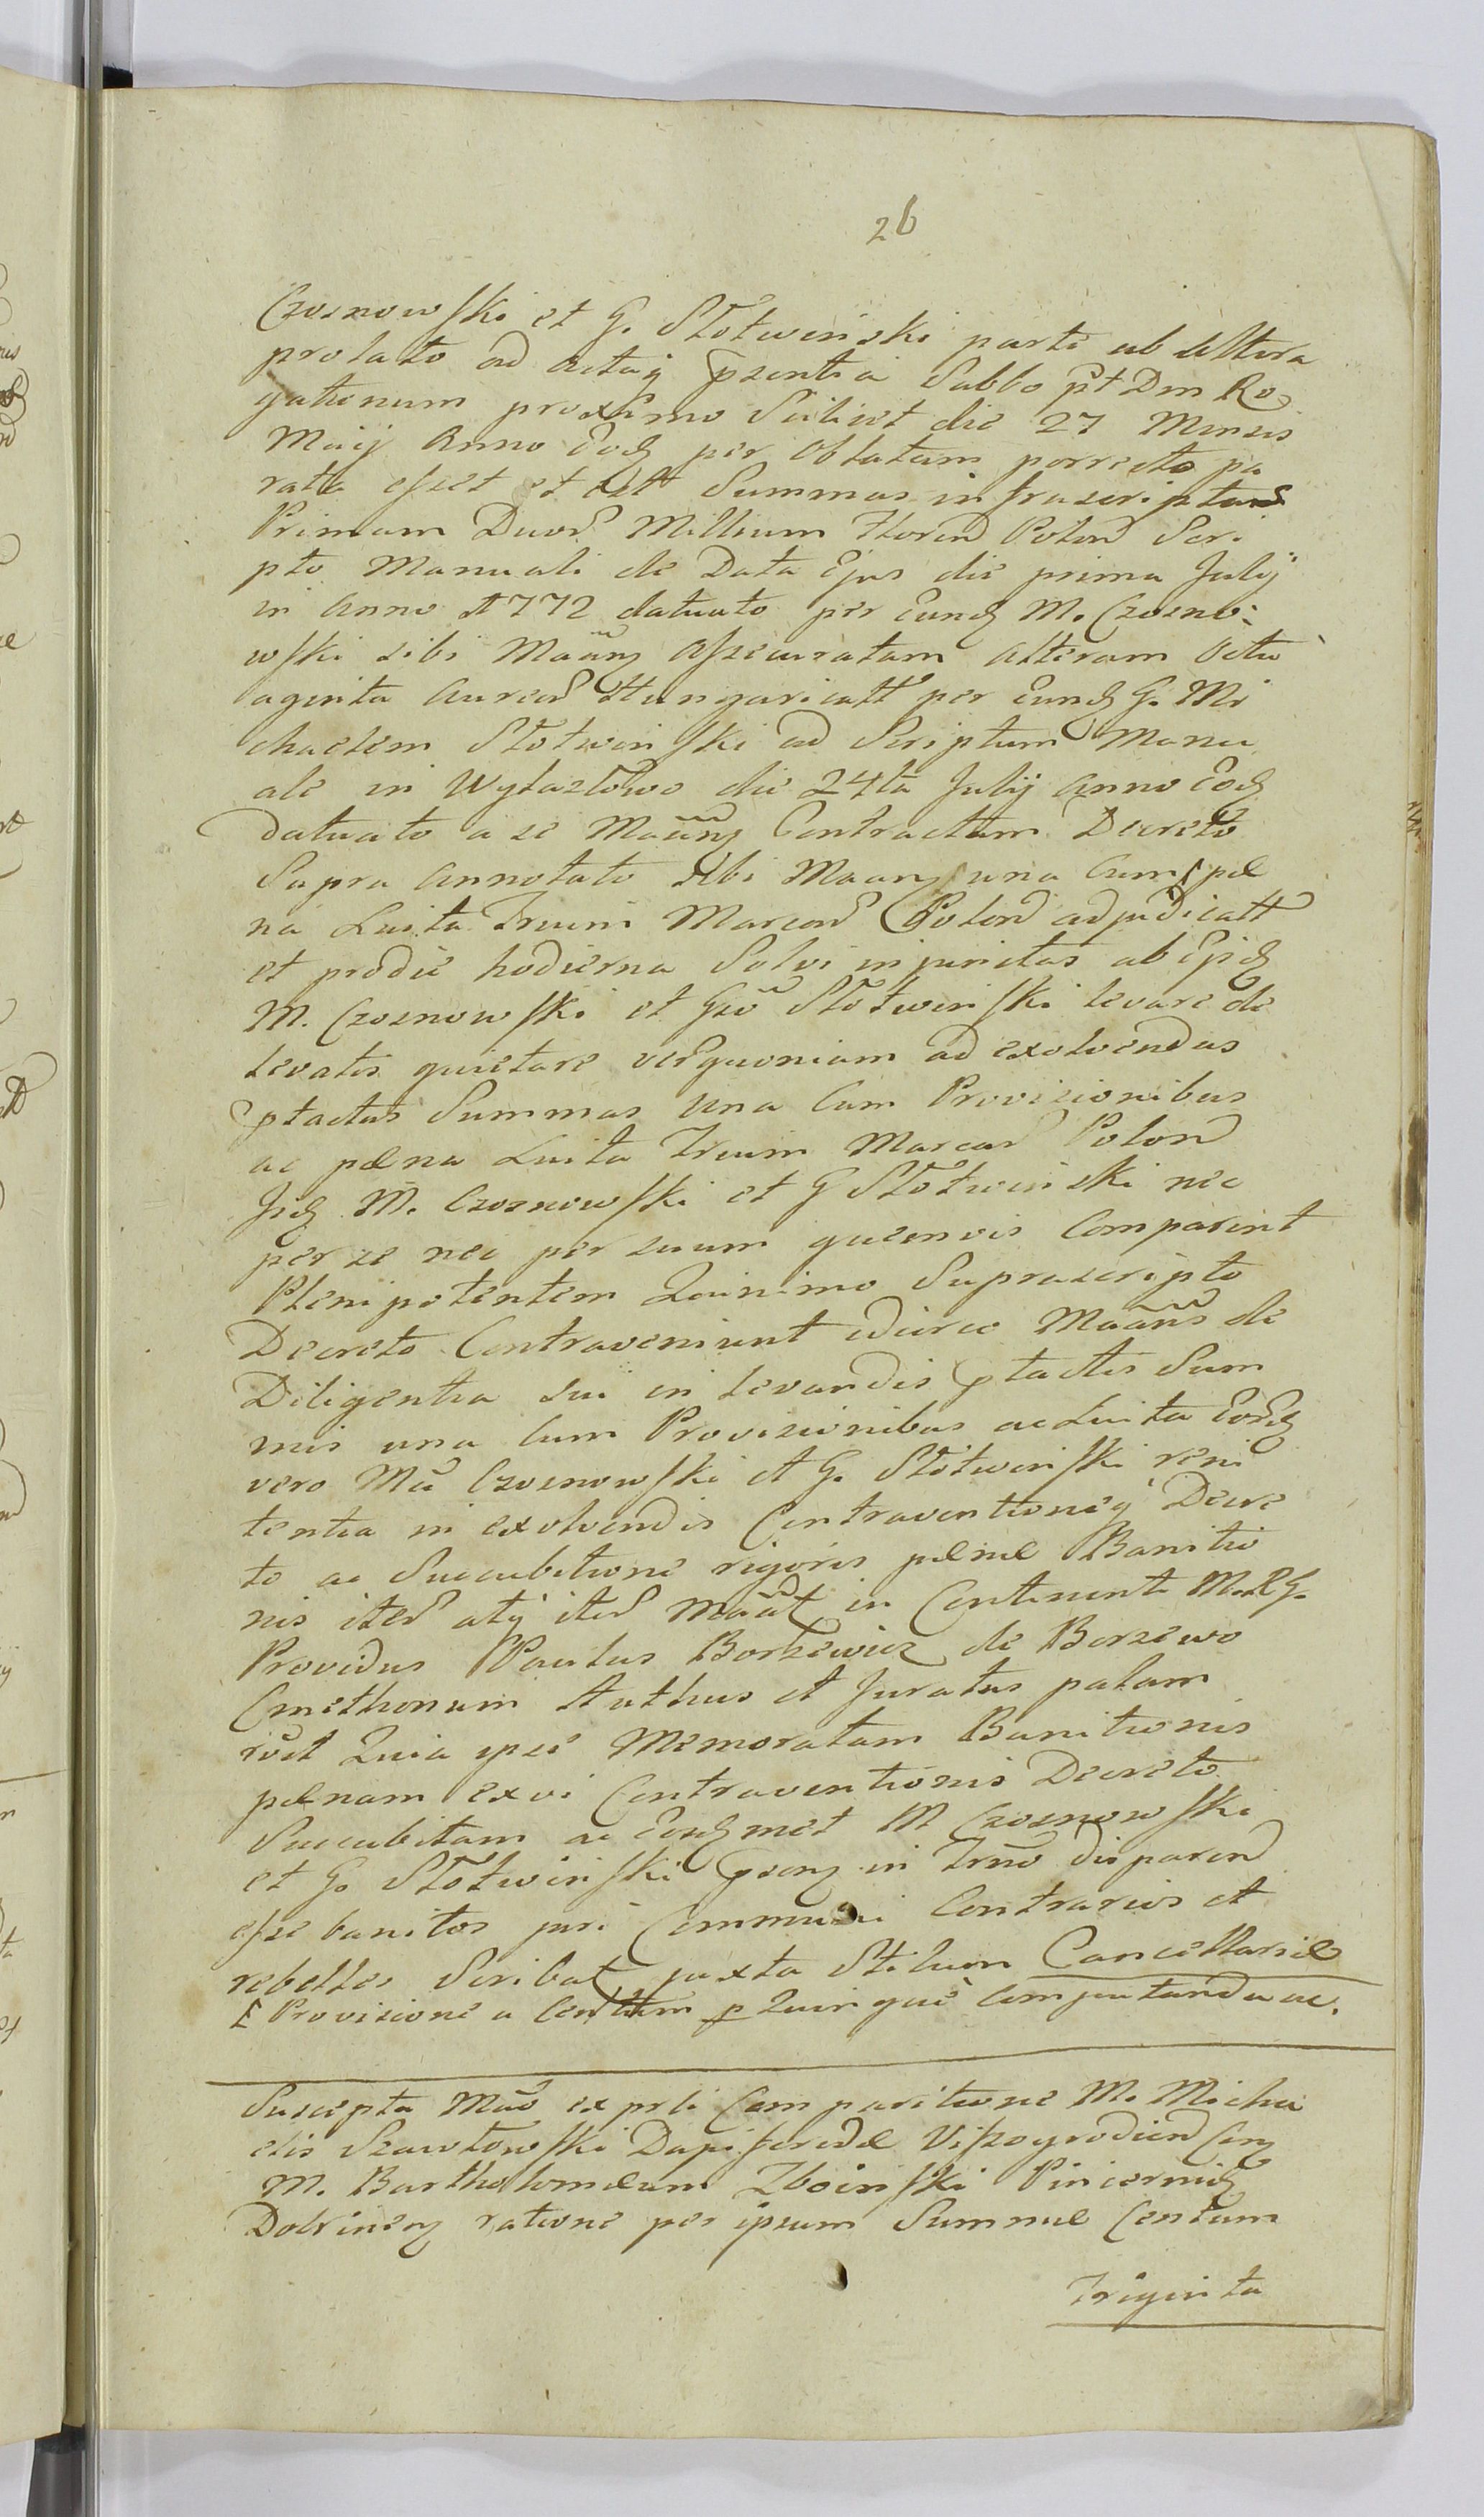 26
Czosnowski et G. Słotwinski parte ab altera
prolato ad Actaq pzentia Sabbo pt Dm Ro
gationum proximo Scilicet die 27 Mensis
Maij Anno Eodg per Oblatam porrecto pa
rata eszet et est Summas infrascriptas
Primam Duor Millium Floren Polon Scri
pto Manuali de Data Ejus die prima Julij
in Anno 1772 datuato per Eundg M. Czosno:
wski sibi Maang Aszecuratam Alteram Octu
aginta Aureor Hungaricatt per Eundg G. Mi
chaelem Słotwinski ad Scriptum Manu
ale in Wyłazłowo die 24ta Julij Anno Eodg
datuato a se Maang Contractam Decreto
Supra Annotato sibi Maang una Cum pæ
na Luita Trium Marcar Polon adjudicatt
et prodie hodierna Solvi injunctas ab Ejsdg
M. Czosnowski et Gso Słotwinski levare de
levatis quietare verquoniam ad exolvendas
ptactas Summas una Cum Provisionibus
ac pæna Luita Trium Marcar Polon
Jidg M. Czosnowski et G Słotwinski nec
per se nec per suum quemvis Comparint
Plenipotentem Quinimo Suprascripto
Decreto Contraveniunt idcirco Maans de
Diligentia sui in levandis ptactis Sum
mis una Cum Provisionibus ac Luita Eordg
vero Ma Czosnowski et G. Słotwinski reni
tentia in exolvendis Contraventioneq Decre
to ac Succubitione rigoris pænæ Banitio
nis iter atq iter Maat in Continenti M. RG.
Providus Paulus Borzewicz de Borzewo
Cmethonum Authus et Juratus palam
rvit Quia ipse Memoratam Banitionis
pænam exvi Contraventionis Decreto
Succubitam ac Eosdgmet M Czosnowski
et G. Słotwinski pseng in Trno disparen
esze banitos juri Communi Contrarios et
rebelles Scribat juxta Stilum Cancellariæ
E Provisione a Centum p Quinque Computanda ac.
Suscepta Mao ex prli Comparitione M. Micha
elis Szawłowski Dapiferidæ Viszogrodien Cong
M. Bartholomæum Zboinski Pincernidg
Dobrineng ratione per ipsum Summæ Centum
Triginta